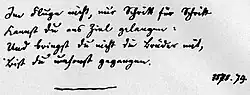 Im Fluge nicht, nur Schritt für Schritt
Kannst du ans Ziel gelangen:
Und bringst du nicht die Brüder mit,
Bist du umsonst gegangen.
79.